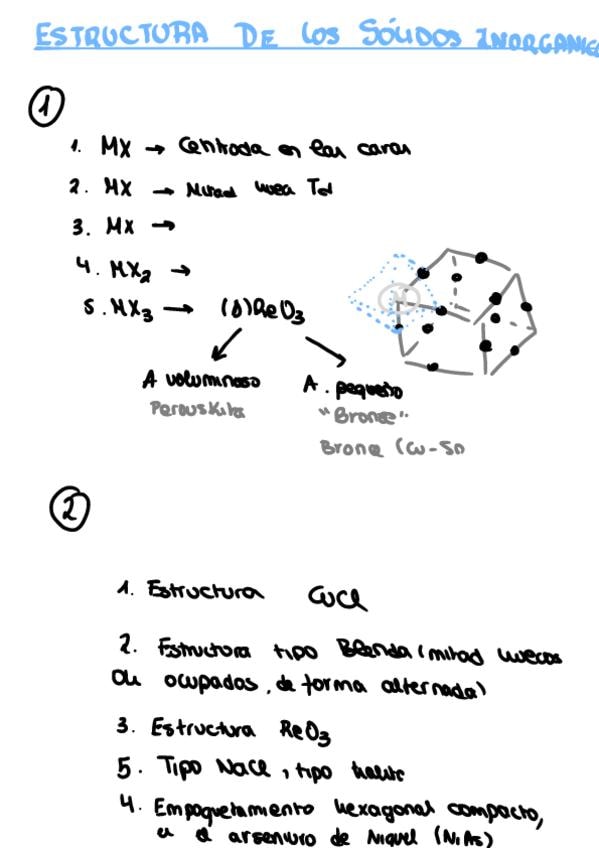 ESTRUCTURA DE LOS SÓLIDOS INORGANIC
1
1. MX → Centrada en las caras
2. MX → Mitad hueco Td
3. MX →
4. MX2 →
5. MX3 → (8) ReO3
A voluminoso A. pequeño
Perouskita "Bronce"
Brone (Cu-Sn
2
1. Estructura CuCl
2. Estructura tipo Blenda (mitad huecos
ocupados, de forma alternada)
3. Estructura ReO3
5. Tipo NaCl, tipo halite
4. Empaquetamiento hexagonal compacto,
arseniuro de Niquel (NiAs)